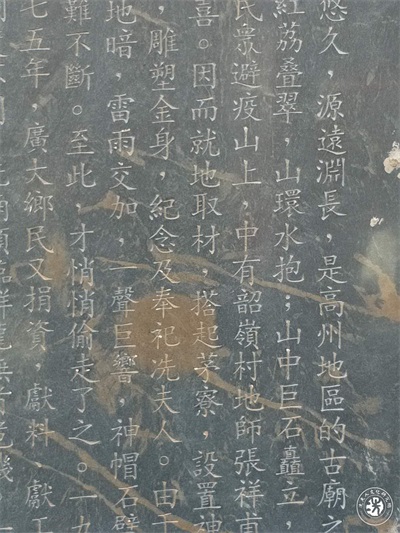 悠久，源遠淵長，是高州地區的古廟之
紅荔叠翠，山環水抱；山中巨石矗立，
民衆避疫山上，中有韶嶺村地師張祥
喜。因而就地取材，搭起茅寮，設置神
，雕塑金身，紀念及奉祀冼夫人。由于
地暗，雷雨交加，一聲巨響，神帽石劈
難不斷。至此，才悄悄偷走了之。一九
七五年，廣大鄉民又捐資，獻料、獻工